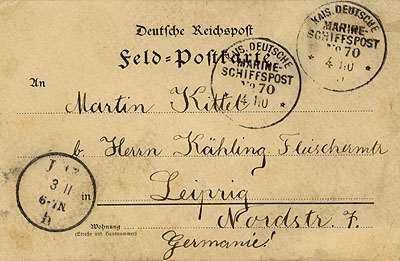 Deutsche Reichspost
Feld-Postkarte
KAIS. DEUTSCHE
MARINE-
SCHIFFSPOST
No 70
* 4 *
KAIS. DEUTSCHE
MARINE-
SCHIFFSPOST
No 70
* 4 *
An
Martin Kittel
b. Herrn Kähling Fleischermtr
in
Leipzig
Wohnung
(Straße und Hausnummer)
Nordstr. 7.
Germanie!
3 11
6-7N
h